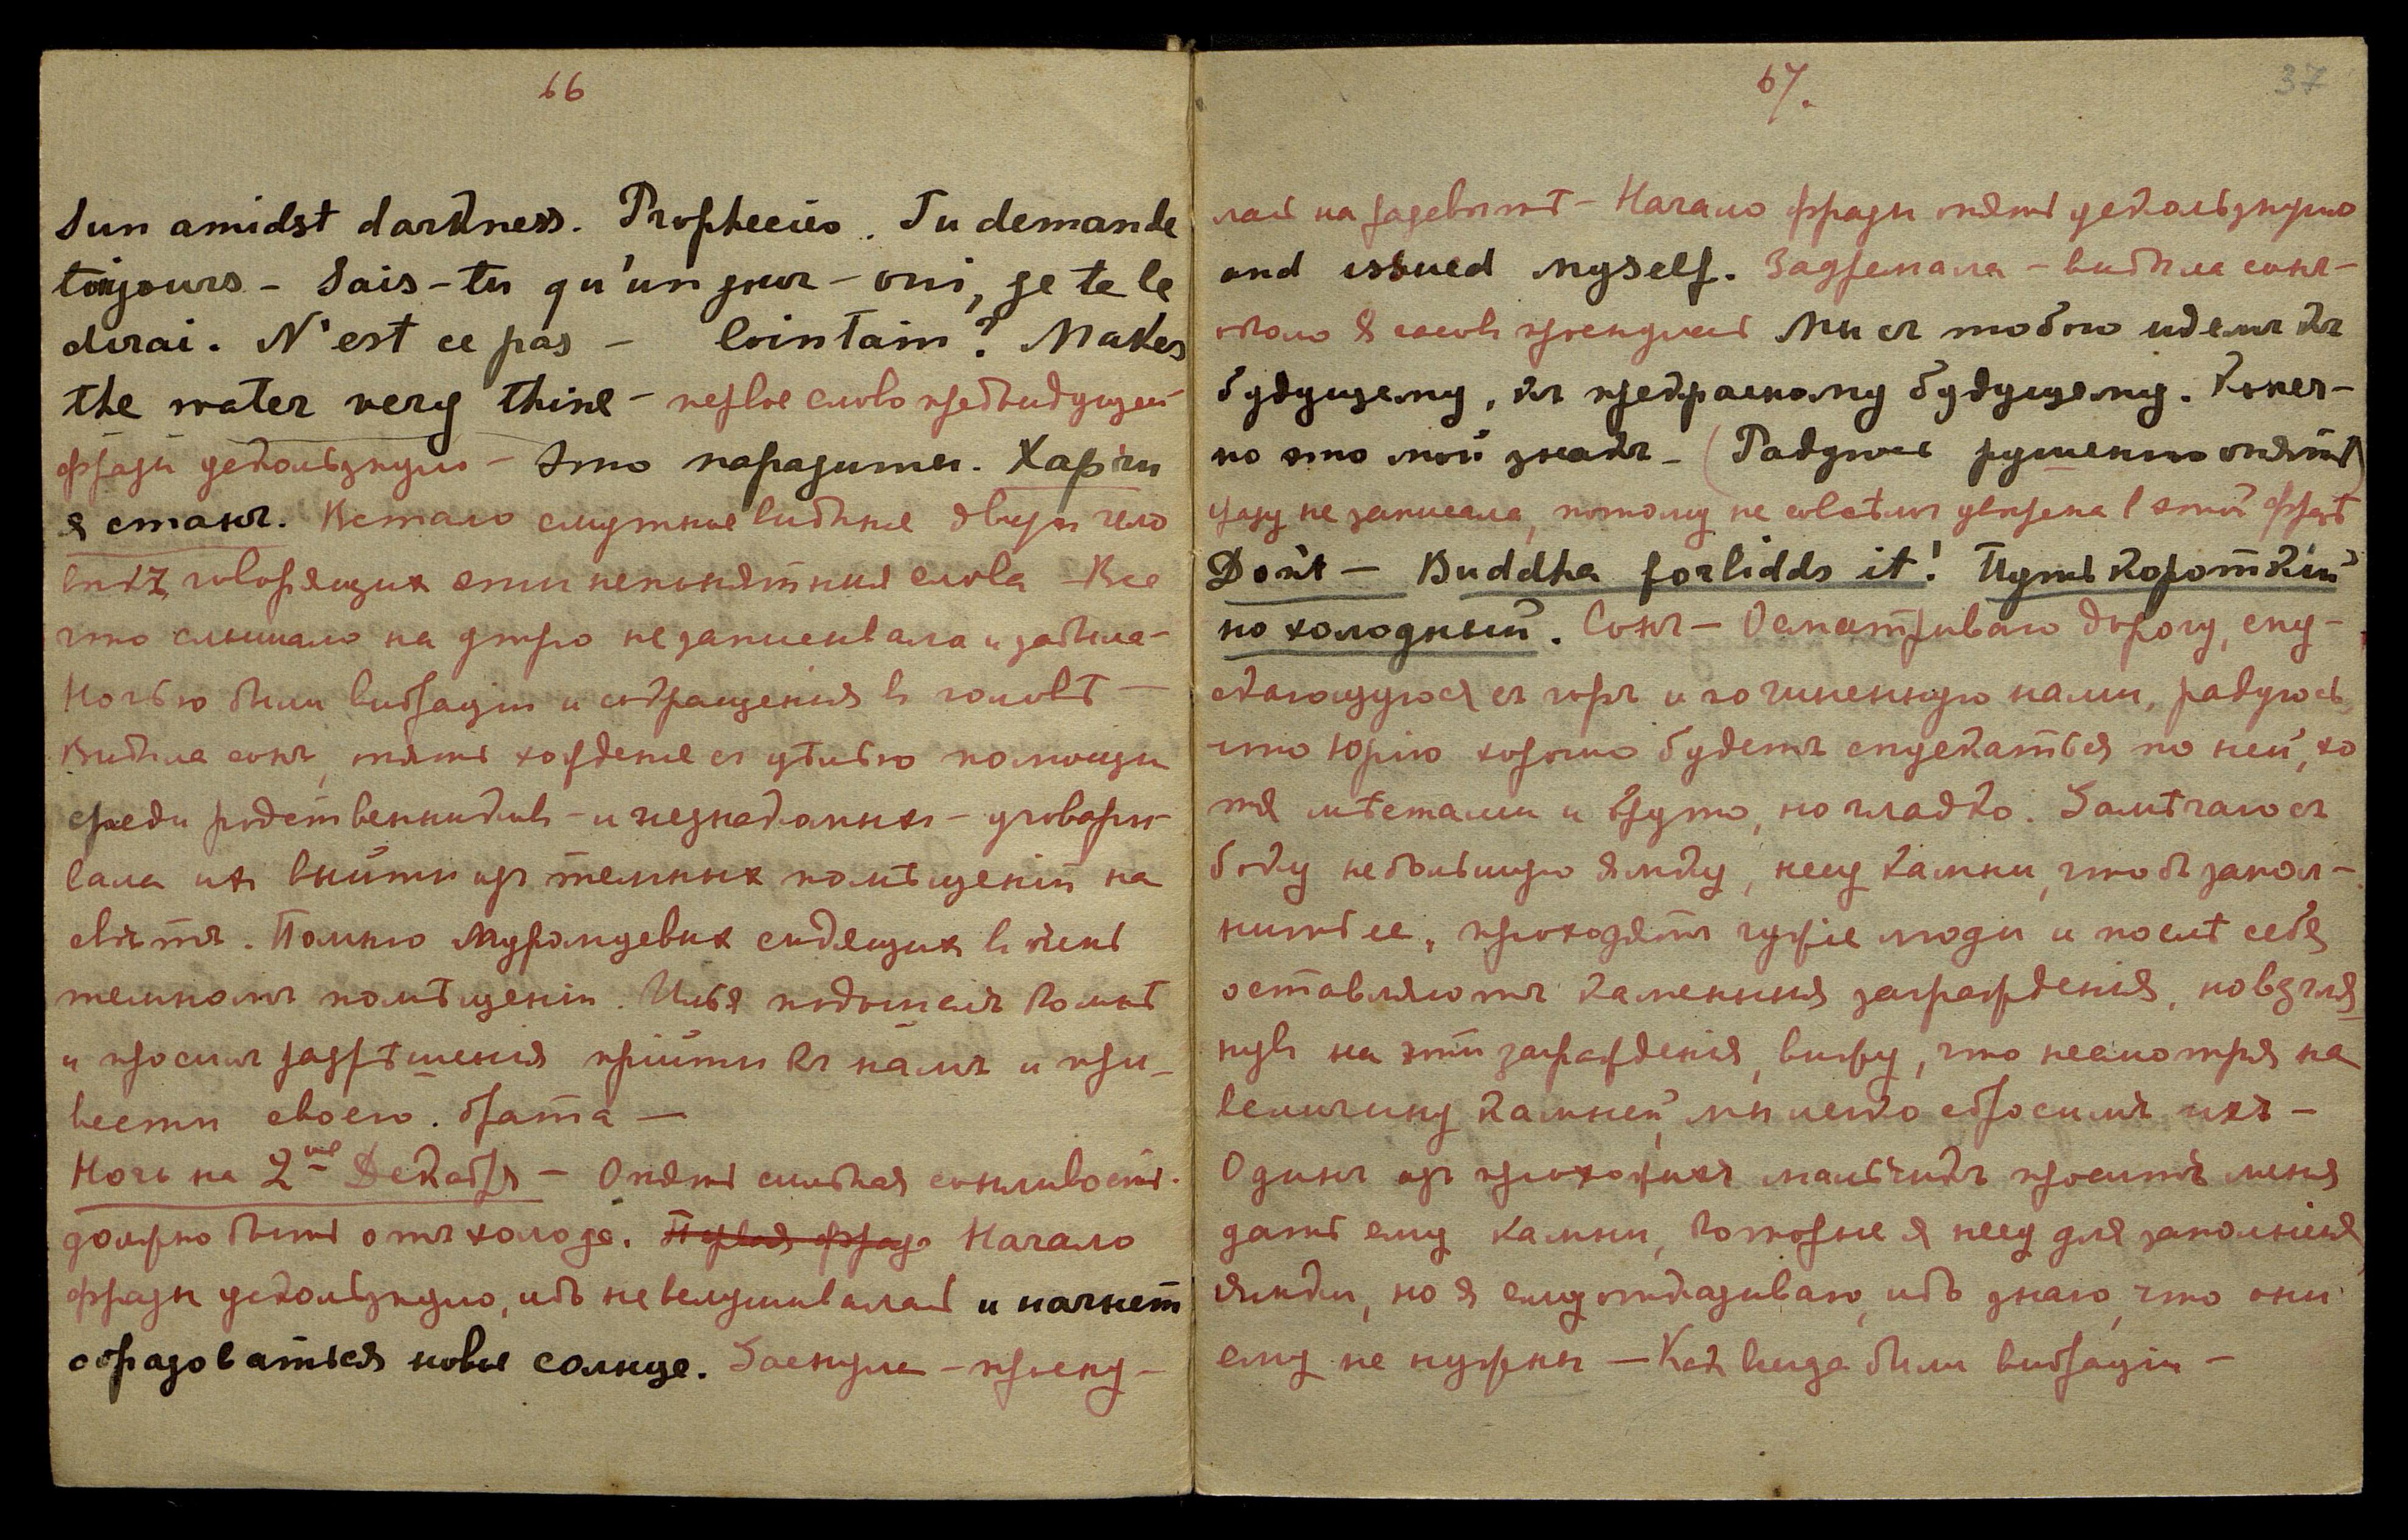 66
Sun amidst darkness. Prophecies. Tu demande
toujours – Sais-tu qu'un jour – oui, je te le
dirai. N'est ce pas – lointain? Makes
the water very thine – первое слово предыидущей
фразы ускользнуло – Это паразиты. Харчи
я станъ. Встало смутное видѣние двухъ чело
вѣкъ, говорящих эти непонятныя слова – Все
что слышало на утро не записывала и забыла –
Ночью были вибрации и сокращения в головѣ –
Видѣла сонъ, опять хождение съ цѣлью помощи
среди родственниковъ – и незнакомыхъ – уговари-
вала ихъ выйти изъ темных помѣщений на
свѣтъ. Помню Муромцевых сидящих в очень
темномъ помѣщении. Илья подошелъ ко мнѣ
и просилъ разрѣшения прийти къ намъ и при-
вести своего брата –
Ночь на 2ое Декабря – Опять сильная сонливость.
должно быть отъ холода. Первая фраза Начало
фразы ускользнуло, ибо не вслушивалась и начнетъ
образоваться новое солнце. Заснула – просну-
67. 37
лась на разсвѣтѣ – Начало фразы опять ускользнуло
and issued myself. Задремала – видѣла сонъ –
около 8 часовъ проснулась Мы съ тобою идемъ къ
будущему, къ прекрасному будущему. Конеч-
но это мой знакъ – (Радуюсь рушению опять)
фразу не записала, потому не совсѣмъ увѣрена в этой фразѣ
Don't – Buddha forbidds it! Путь короткий
но холодный. Сонъ – Осматриваю дорогу, спу-
скающуюся съ горъ и починенную нами, радуюсь,
что Юрію хорошо будетъ спускаться по ней, хо
тя мѣстами и круто, но гладко. Замѣчаю съ
боку небольшую ямку, несу камни, чтобъ запол-
нить ее, проходятъ чужие люди и послѣ себя
оставляютъ каменныя заграждения, но взгля
нувъ на эти заграждения, вижу, что несмотря на
величину камней, мы легко сбросимъ ихъ –
Одинъ изъ прохожихъ мальчикъ проситъ меня
дать ему камни, которые я несу для заполнения
ямки, но я ему отказываю, ибо знаю, что они
ему не нужны – Какъ всегда были вибрации –